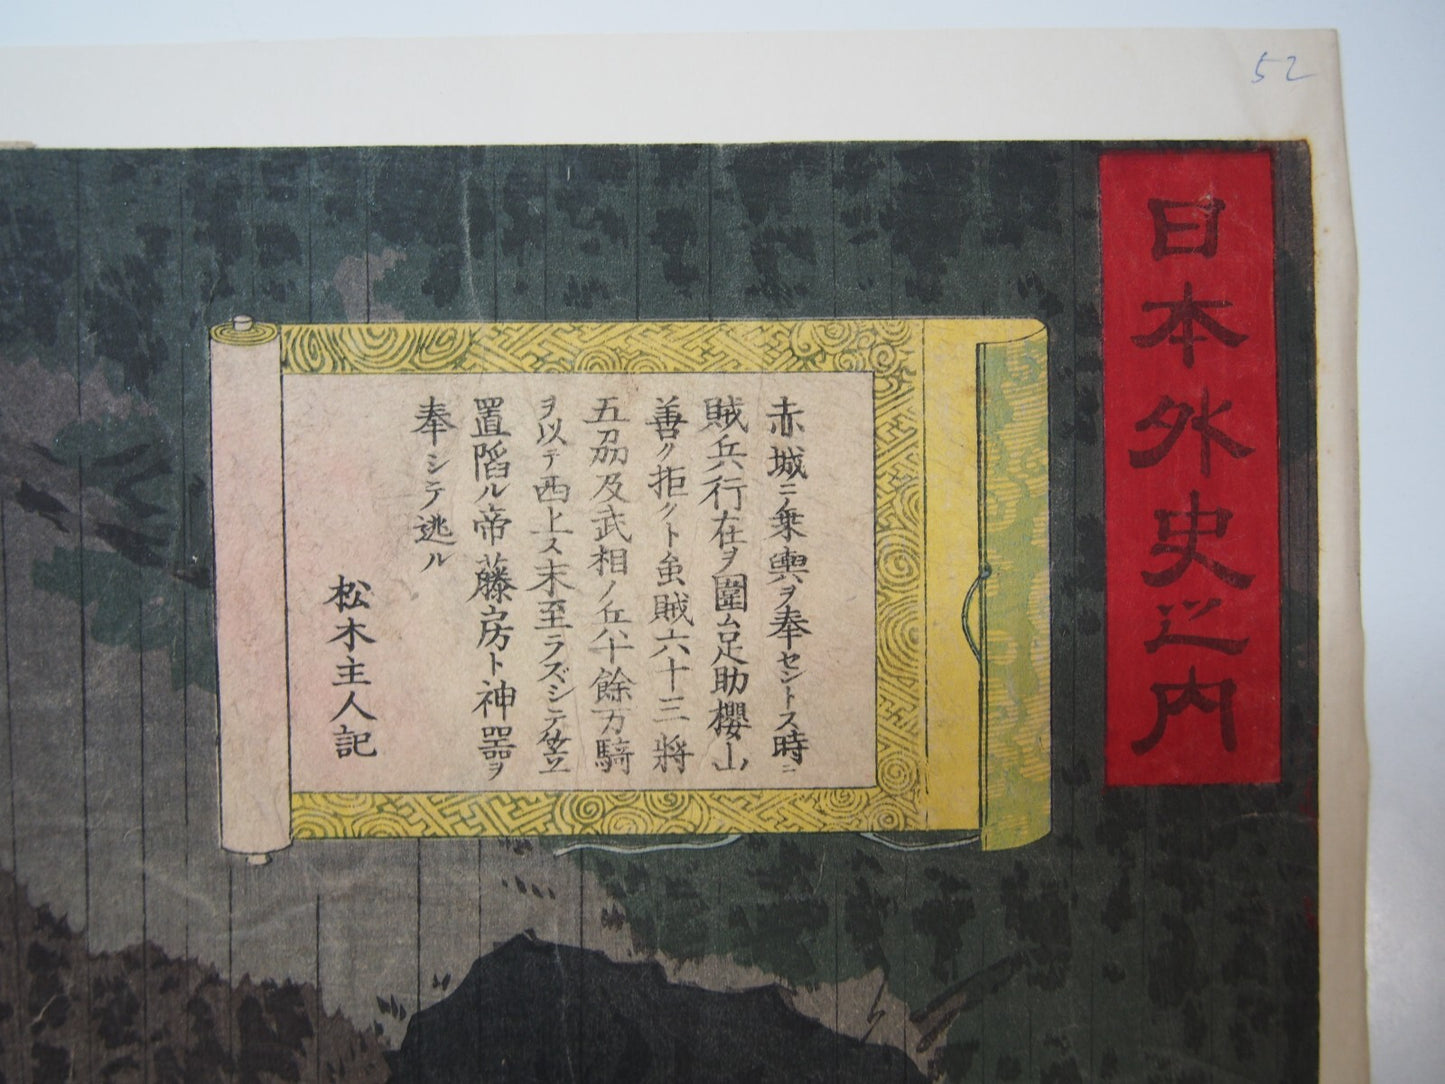 52
日本外史之内
赤城ニ乗輿ヲ奉セントス時ニ
賊兵行在ヲ圍ム足助櫻山
善ク拒クト虽賊六十三將
五刕及武相ノ兵八十餘万騎
ヲ以テ西上ス未至ラズシテ笠
置陷ル帝藤房ト神器ヲ
奉シテ逃ル
松木主人記